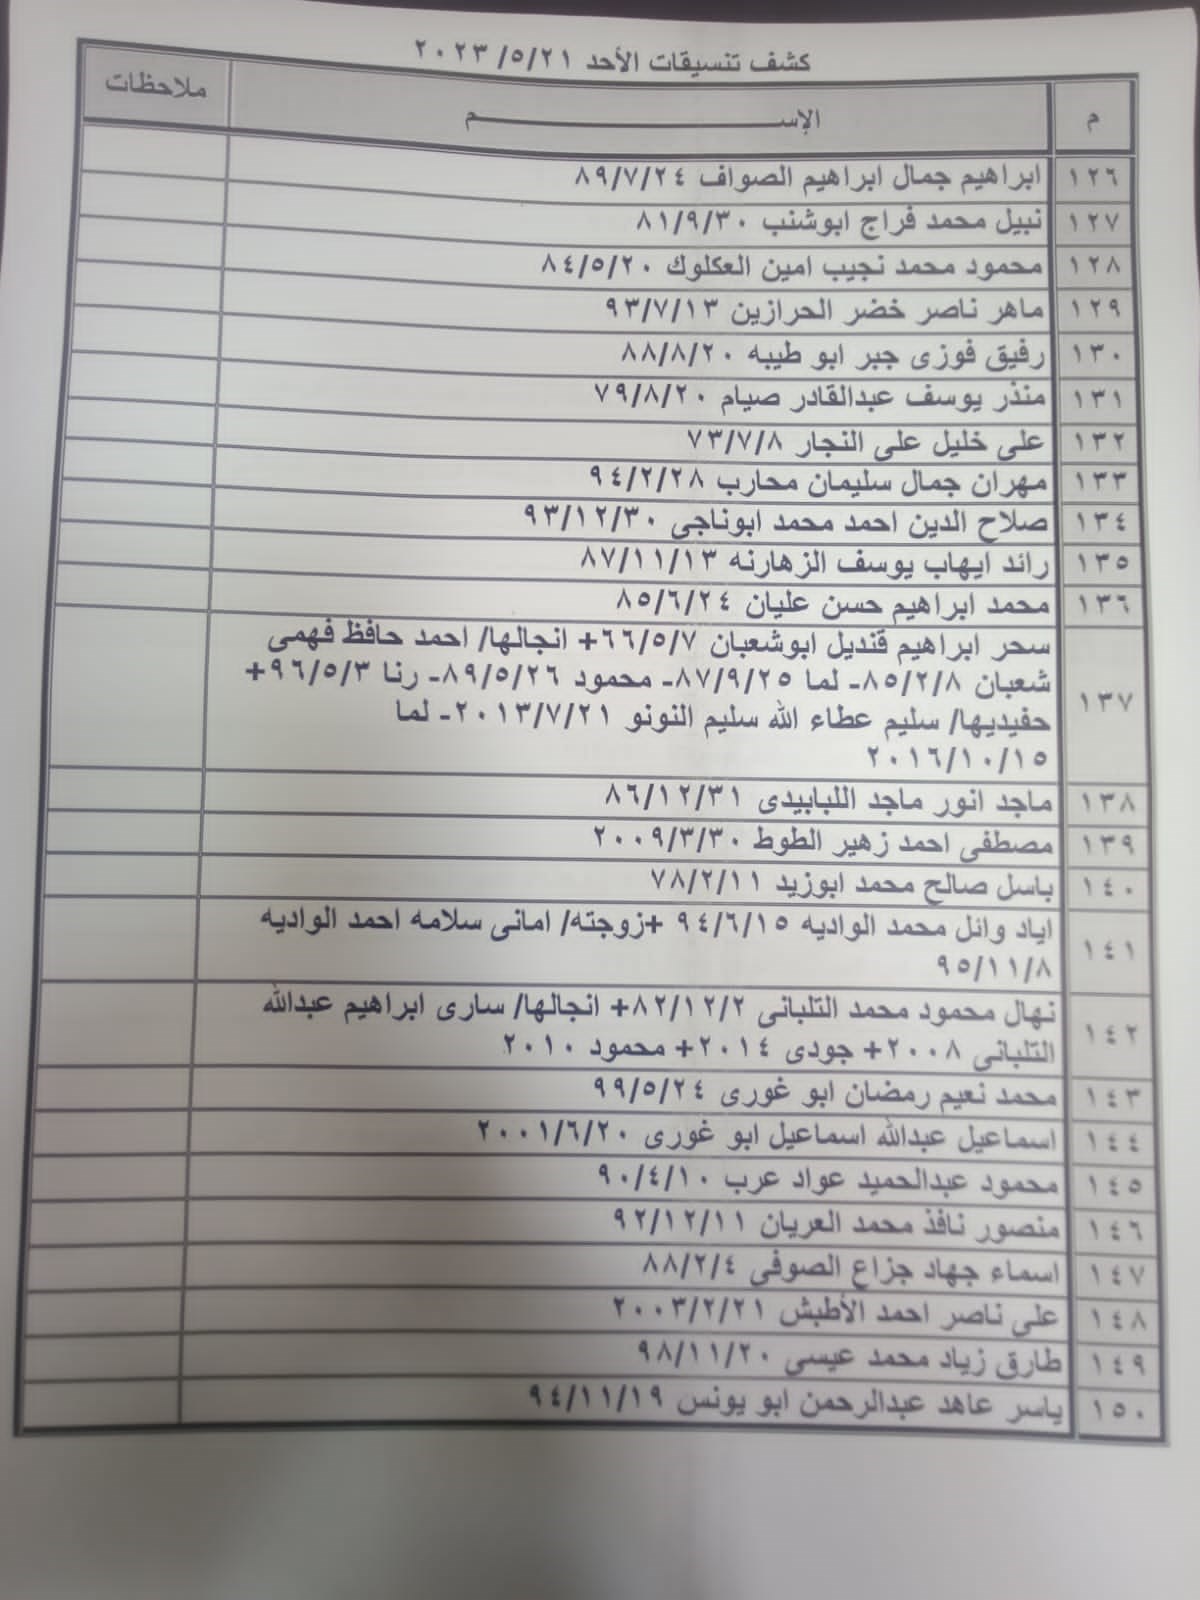 كشف تنسيقات الأحد ٢٠٢٣ /٥/٢١
م الإســـــــــــــــــــــــــم ملاحظات
١٢٦ ابراهيم جمال ابراهيم الصواف ٨٩/٧/٢٤
١٢٧ نبيل محمد فراج ابوشنب ٨١/٩/٣٠
١٢٨ محمود محمد نجيب امين العكلوك ٨٤/٥/٢٠
١٢٩ ماهر ناصر خضر الحرازين ٩٣/٧/١٣
١٣٠ رفيق فوزى جبر ابو طيبه ٨٨/٨/٢٠
١٣١ منذر يوسف عبدالقادر صيام ٧٩/٨/٢٠
١٣٢ على خليل على النجار ٧٣/٧/٨
١٣٣ مهران جمال سليمان محارب ٩٤/٢/٢٨
١٣٤ صلاح الدين احمد محمد ابوناجى ٩٣/١٢/٣٠
١٣٥ رائد ايهاب يوسف الزهارنه ٨٧/١١/١٣
١٣٦ محمد ابراهيم حسن عليان ٨٥/٦/٢٤
١٣٧ سحر ابراهيم قنديل ابوشعبان ٦٦/٥/٧+ انجالها/ احمد حافظ فهمى
شعبان ٨٥/٢/٨- لما ٨٧/٩/٢٥- محمود ٨٩/٥/٢٦- رنا ٩٦/٥/٣+
حفيديها/ سليم عطاء الله سليم النونو ٢٠١٣/٧/٢١- لما
٢٠١٦/١٠/١٥
١٣٨ ماجد انور ماجد اللبابيدى ٨٦/١٢/٣١
١٣٩ مصطفى احمد زهير الطوط ٢٠٠٩/٣/٣٠
١٤٠ باسل صالح محمد ابوزيد ٧٨/٢/١١
١٤١ اياد وائل محمد الواديه ٩٤/٦/١٥ +زوجته/ امانى سلامه احمد الواديه
٩٥/١١/٨
١٤٢ نهال محمود محمد التلبانى ٨٢/١٢/٢+ انجالها/ سارى ابراهيم عبدالله
التلبانى ٢٠٠٨+ جودى ٢٠١٤+ محمود ٢٠١٠
١٤٣ محمد نعيم رمضان ابو غورى ٩٩/٥/٢٤
١٤٤ اسماعيل عبدالله اسماعيل ابو غورى ٢٠٠١/٦/٢٠
١٤٥ محمود عبدالحميد عواد عرب ٩٠/٤/١٠
١٤٦ منصور نافذ محمد العريان ٩٢/١٢/١١
١٤٧ اسماء جهاد جزاع الصوفى ٨٨/٢/٤
١٤٨ على ناصر احمد الأطبش ٢٠٠٣/٢/٢١
١٤٩ طارق زياد محمد عيسى ٩٨/١١/٢٠
١٥٠ ياسر عاهد عبدالرحمن ابو يونس ٩٤/١١/١٩